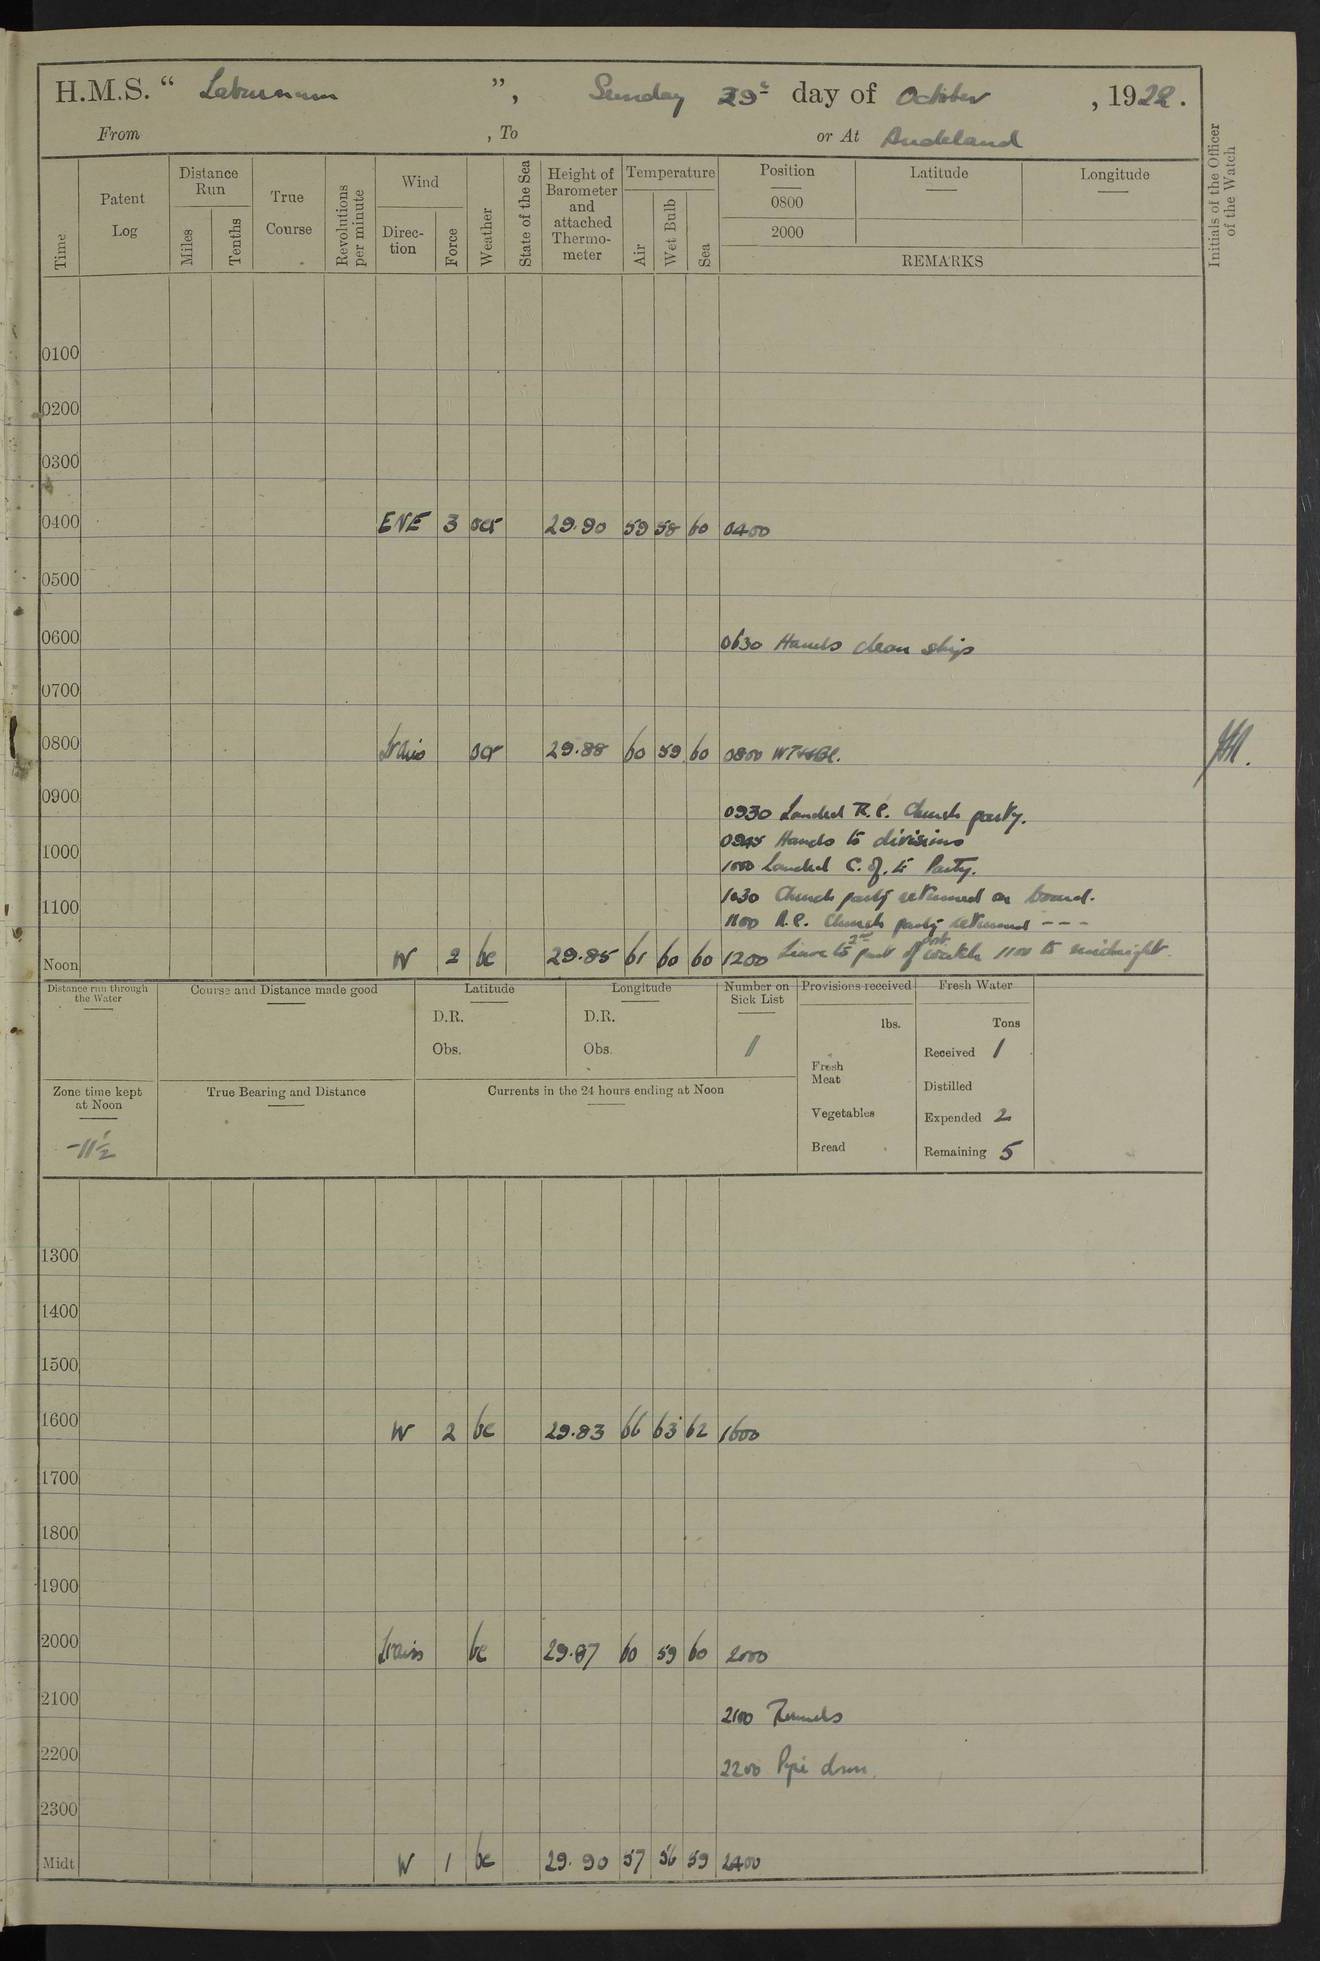 H.M.S. “ Laburnum ”, Sunday 29th day of October , 1922.
From , To or At Auckland
Initials of the Officer of the Watch
Time Patent Log Distance Run Miles Tenths True Course Revolutions per minute Wind Direction Force Weather State of the Sea Height of Barometer and attached Thermometer Temperature Air Wet Bulb Sea Position 0800 2000 Latitude Longitude
REMARKS
0100
0200
0300
0400 ENE 3 ocr 29.90 59 58 60 0400
0500
0600 0630 Hands clean ship
0700
0800 Lt airs ocr 29.88 60 59 60 0800
0900 0930 Landed R.C. Church party.
0945 Hands to divisions
1000 1000 Landed C. of. E Party.
1030 Church party returned on board.
1100 1100 R.C. Church party returned – – –
Noon W 2 bc 29.85 61 60 60 1200 Leave to 2nd part of port watch 1100 to midnight.
Distance run through the Water Course and Distance made good Latitude Longitude Number on Sick List Provisions received Fresh Water
D.R. D.R. lbs. Tons
Obs. Obs. 11 Fresh Meat Received 1
Zone time kept at Noon True Bearing and Distance Currents in the 24 hours ending at Noon Distilled
Vegetables Expended 2
-11½ Bread Remaining 5
1300
1400
1500
1600 W 2 bc 29.83 66 63 62 1600
1700
1800
1900
2000 Lt airs bc 29.87 60 59 60 2000
2100 2100 Rounds
2200 2200 Pipe down.
2300
Midt W 1 bc 29.90 57 56 59 2400